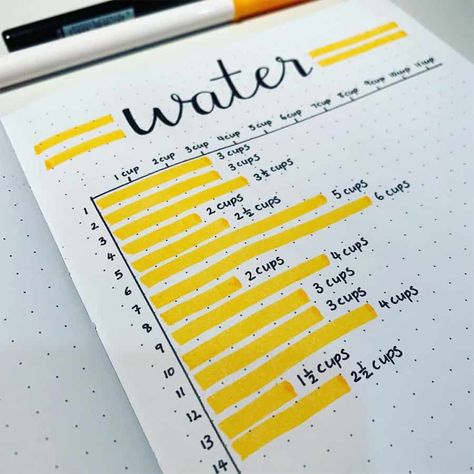 water
1 cup 2 cup 3 cup 4 cup 5 cup 6 cup 7 cup 8 cup 9 cup 10 cup 11 cup
1 3 cups
2 3 cups
3 3½ cups
4 2 cups
5 2½ cups
6 5 cups
7 6 cups
8 2 cups
9 4 cups
10 3 cups
11 3 cups
12 4 cups
13 1½ cups
14 2½ cups